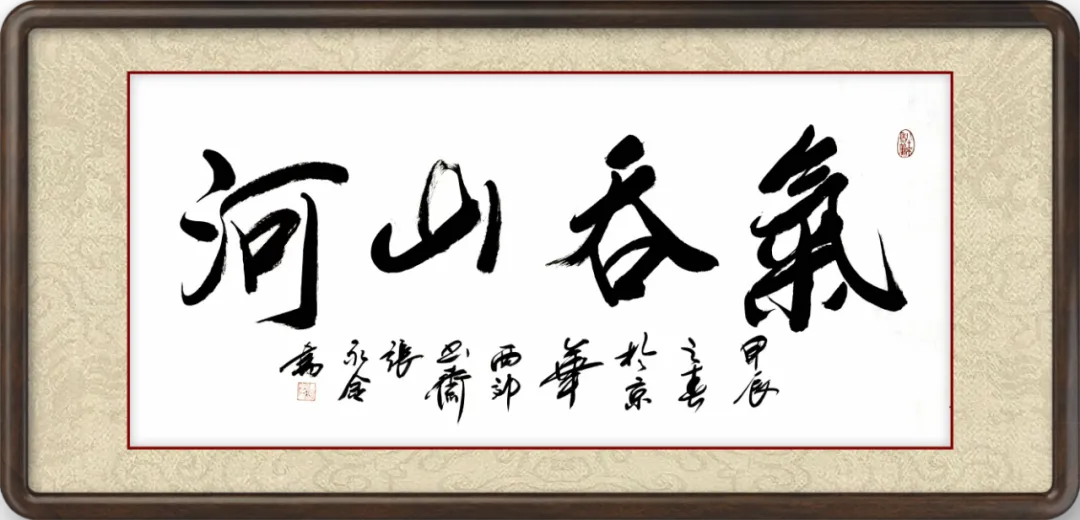 氣吞山河
甲辰
之春
於京
華
西郊
書齋
張
永合